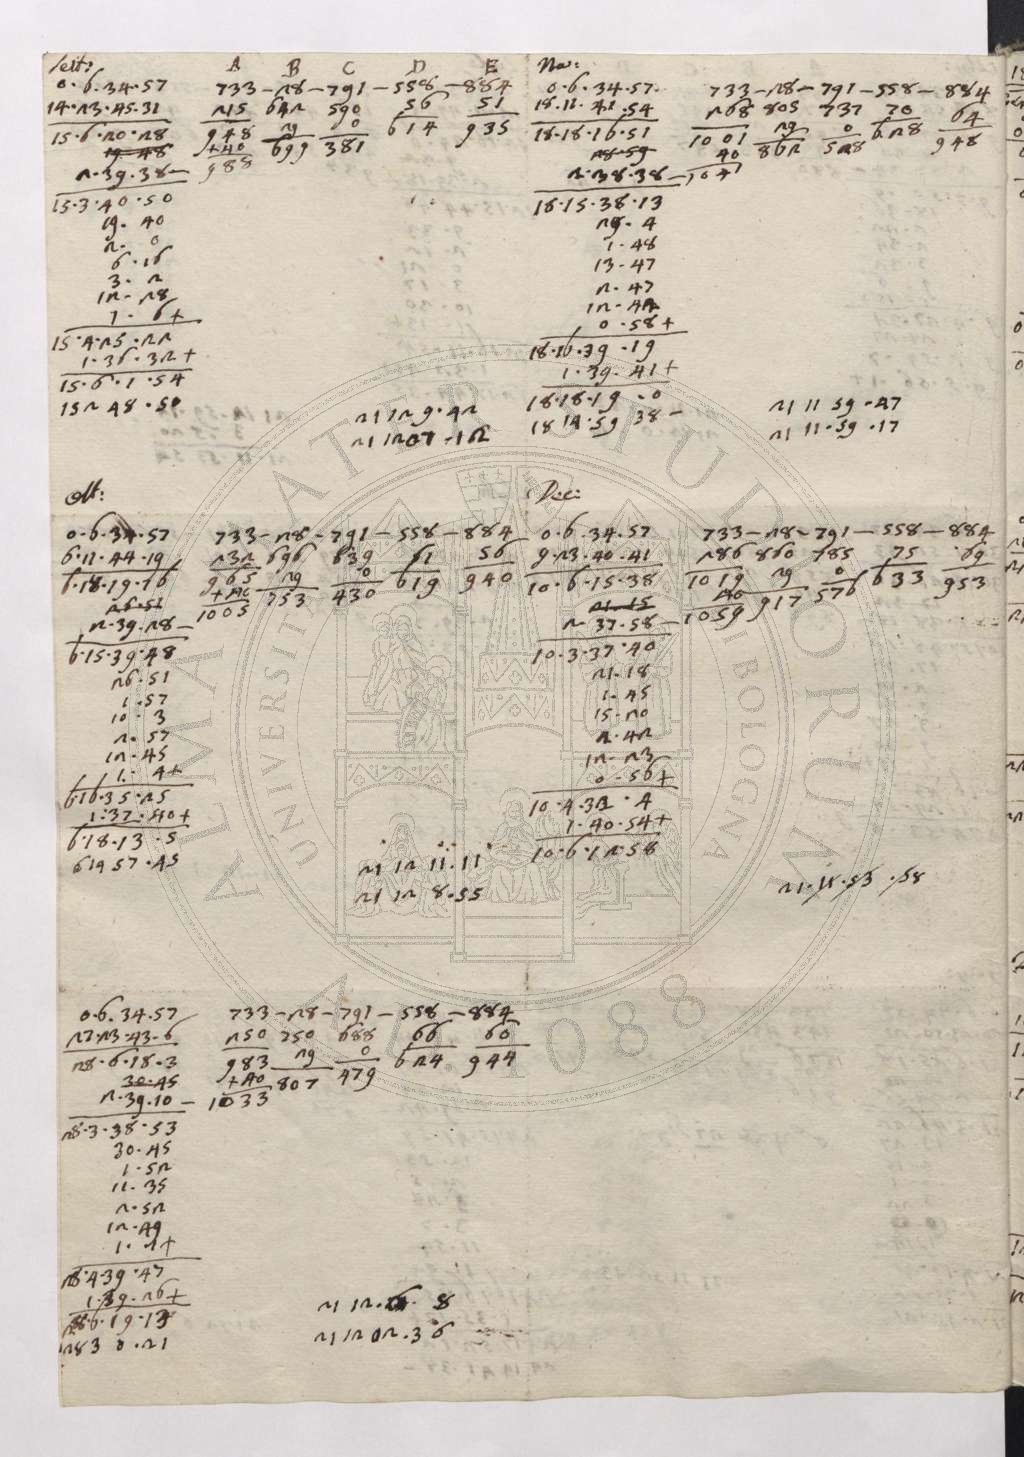 Sett:
A B C D E
0·6·34·57 733–28–791–558–884
14·23·45·31 215 642 590 56 51
15·6·20·28 948 29 0 614 935
19·48 +40 699 381
2·39·38– 988
15·3·40·50
19·40
2·0
6·16
3·2
12·28
1·6+
15·4·25·22
1·36·32+
15·6·1·54
152 48·50
21 12 9·42
21 12 07·12
Nov:
0·6·34·57 733–28–791–558–884
18·11·41·54 268 803 737 70 64
18·18·16·51 1001 29 0 628 948
28·59 40 862 528
2·38·38– 1041
18·15·38·13
28·4
1·48
13·47
2·47
12·42
0·58+
18·16·39·19
1·39·41+
18·18·19·0
18 14·59 38–
21 11 59·47
21 11·59·17
Ott:
0·6·34·57 733–28–791–558–884
6·11·44·19 232 696 639 61 56
6·18·19·16 965 29 0 619 940
26·51 +40 753 430
2·39·28– 1005
6·15·39·48
26·51
1·57
10·3
2·57
12·45
1·4+
6·16·35·25
1·37·40+
6·18·13·5
614 57·45
21 12 11·11
21 12 8·55
Dec:
0·6·34·57 733–28–791–558–884
9·23·40·41 286 860 785 75 69
10·6·15·38 1019 29 0 633 953
21·15 40 917 576
2·37·58– 1059
10·3·37·40
21·18
1·45
15·20
2·42
12·23
0·56+
10·4·32·4
1·40·54+
10·6·12·58
21·11·53·58
0·6·34·57 733–28–791–558–884
27·23·43·6 250 750 688 66 60
28·6·18·3 983 29 0 624 944
30·45 +40 807 479
2·39·10– 1033
28·3·38·53
30·45
1·52
11·35
2·52
12·49
1·1+
28·4·39·47
1·39·26+
28·6·19·13
283 0·21
21 12· 8
21 12 02·36
ALMA MATER STUDIORUM
UNIVERSITÀ DI BOLOGNA
A.D. 1088